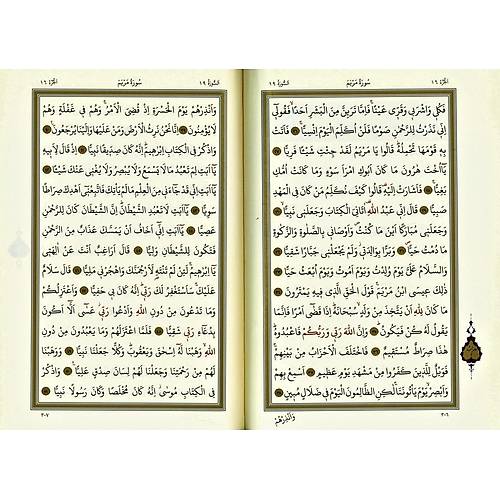 الجزء ١٦
سُورَةُ مَرْيَمَ
السورة ١٩
فَكُلِي وَاشْرَبِي وَقَرِّي عَيْنًا فَاِمَّا تَرَيِنَّ مِنَ الْبَشَرِ اَحَدًا فَقُولِي
اِنِّي نَذَرْتُ لِلرَّحْمٰنِ صَوْمًا فَلَنْ اُكَلِّمَ الْيَوْمَ اِنْسِيًّا ﴿٢٦﴾ فَاَتَتْ
بِهِ قَوْمَهَا تَحْمِلُهُ قَالُوا يَا مَرْيَمُ لَقَدْ جِئْتِ شَيْئًا فَرِيًّا ﴿٢٧﴾
يَا اُخْتَ هٰرُونَ مَا كَانَ اَبُوكِ امْرَاَ سَوْءٍ وَمَا كَانَتْ اُمُّكِ
بَغِيًّا ﴿٢٨﴾ فَاَشَارَتْ اِلَيْهِ قَالُوا كَيْفَ نُكَلِّمُ مَنْ كَانَ فِي الْمَهْدِ
صَبِيًّا ﴿٢٩﴾ قَالَ اِنِّي عَبْدُ اللّٰهِ اٰتَانِيَ الْكِتَابَ وَجَعَلَنِي نَبِيًّا ﴿٣٠﴾
وَجَعَلَنِي مُبَارَكًا اَيْنَ مَا كُنْتُ وَاَوْصَانِي بِالصَّلٰوةِ وَالزَّكٰوةِ
مَا دُمْتُ حَيًّا ﴿٣١﴾ وَبَرًّا بِوَالِدَتِي وَلَمْ يَجْعَلْنِي جَبَّارًا شَقِيًّا ﴿٣٢﴾
وَالسَّلَامُ عَلَيَّ يَوْمَ وُلِدْتُ وَيَوْمَ اَمُوتُ وَيَوْمَ اُبْعَثُ حَيًّا ﴿٣٣﴾
ذٰلِكَ عِيسَى ابْنُ مَرْيَمَ قَوْلَ الْحَقِّ الَّذِي فِيهِ يَمْتَرُونَ ﴿٣٤﴾
مَا كَانَ لِلّٰهِ اَنْ يَتَّخِذَ مِنْ وَلَدٍ سُبْحَانَهُ اِذَا قَضٰى اَمْرًا فَاِنَّمَا
يَقُولُ لَهُ كُنْ فَيَكُونُ ﴿٣٥﴾ وَاِنَّ اللّٰهَ رَبِّي وَرَبُّكُمْ فَاعْبُدُوهُ
هٰذَا صِرَاطٌ مُسْتَقِيمٌ ﴿٣٦﴾ فَاخْتَلَفَ الْاَحْزَابُ مِنْ بَيْنِهِمْ
فَوَيْلٌ لِلَّذِينَ كَفَرُوا مِنْ مَشْهَدِ يَوْمٍ عَظِيمٍ ﴿٣٧﴾ اَسْمِعْ بِهِمْ
وَاَبْصِرْ يَوْمَ يَاْتُونَنَا لٰكِنِ الظَّالِمُونَ الْيَوْمَ فِي ضَلَالٍ مُبِينٍ ﴿٣٨﴾
٣٠٦
وَاَنْذِرْهُمْ
السورة ١٩
سُورَةُ مَرْيَمَ
الجزء ١٦
وَاَنْذِرْهُمْ يَوْمَ الْحَسْرَةِ اِذْ قُضِيَ الْاَمْرُ وَهُمْ فِي غَفْلَةٍ وَهُمْ
لَا يُؤْمِنُونَ ﴿٣٩﴾ اِنَّا نَحْنُ نَرِثُ الْاَرْضَ وَمَنْ عَلَيْهَا وَاِلَيْنَا يُرْجَعُونَ ﴿٤٠﴾
وَاذْكُرْ فِي الْكِتَابِ اِبْرٰهِيمَ اِنَّهُ كَانَ صِدِّيقًا نَبِيًّا ﴿٤١﴾ اِذْ قَالَ لِاَبِيهِ
يَا اَبَتِ لِمَ تَعْبُدُ مَا لَا يَسْمَعُ وَلَا يُبْصِرُ وَلَا يُغْنِي عَنْكَ شَيْئًا ﴿٤٢﴾
يَا اَبَتِ اِنِّي قَدْ جَاءَنِي مِنَ الْعِلْمِ مَا لَمْ يَاْتِكَ فَاتَّبِعْنِي اَهْدِكَ صِرَاطًا
سَوِيًّا ﴿٤٣﴾ يَا اَبَتِ لَا تَعْبُدِ الشَّيْطَانَ اِنَّ الشَّيْطَانَ كَانَ لِلرَّحْمٰنِ
عَصِيًّا ﴿٤٤﴾ يَا اَبَتِ اِنِّي اَخَافُ اَنْ يَمَسَّكَ عَذَابٌ مِنَ الرَّحْمٰنِ
فَتَكُونَ لِلشَّيْطَانِ وَلِيًّا ﴿٤٥﴾ قَالَ اَرَاغِبٌ اَنْتَ عَنْ اٰلِهَتِي
يَا اِبْرٰهِيمُ لَئِنْ لَمْ تَنْتَهِ لَاَرْجُمَنَّكَ وَاهْجُرْنِي مَلِيًّا ﴿٤٦﴾ قَالَ سَلَامٌ
عَلَيْكَ سَاَسْتَغْفِرُ لَكَ رَبِّي اِنَّهُ كَانَ بِي حَفِيًّا ﴿٤٧﴾ وَاَعْتَزِلُكُمْ
وَمَا تَدْعُونَ مِنْ دُونِ اللّٰهِ وَاَدْعُوا رَبِّي عَسٰى اَلَّا اَكُونَ
بِدُعَاءِ رَبِّي شَقِيًّا ﴿٤٨﴾ فَلَمَّا اعْتَزَلَهُمْ وَمَا يَعْبُدُونَ مِنْ دُونِ
اللّٰهِ وَهَبْنَا لَهُ اِسْحٰقَ وَيَعْقُوبَ وَكُلًّا جَعَلْنَا نَبِيًّا ﴿٤٩﴾ وَوَهَبْنَا
لَهُمْ مِنْ رَحْمَتِنَا وَجَعَلْنَا لَهُمْ لِسَانَ صِدْقٍ عَلِيًّا ﴿٥٠﴾ وَاذْكُرْ
فِي الْكِتَابِ مُوسٰى اِنَّهُ كَانَ مُخْلَصًا وَكَانَ رَسُولًا نَبِيًّا ﴿٥١﴾
٣٠٧